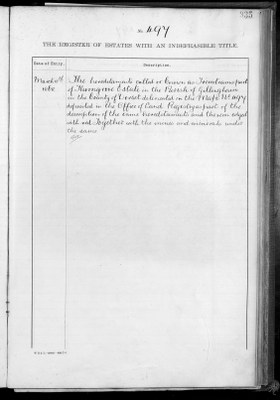 No. 497
THE REGISTER OF ESTATES WITH AN INDEFEASIBLE TITLE.
Date of Entry. Description.
The hereditaments called or known as part
of Estate in the Parish of Gillingham
in the County of Dorset delineated on the Map No. 497
deposited in the Office of Land Registry as part of the
description of the same hereditaments and thereon edged
with red Together with the mines and minerals under
the same